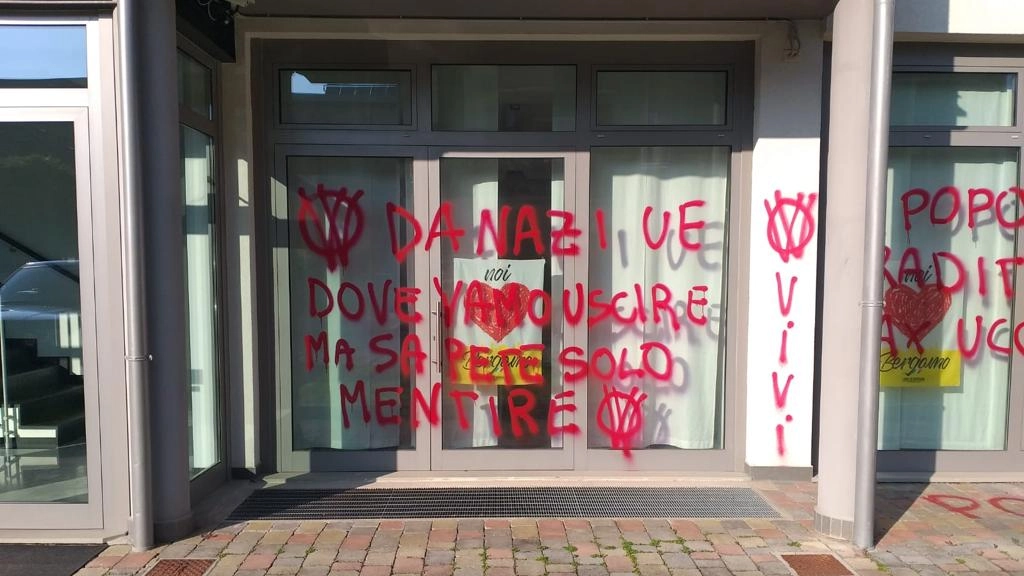 DA NAZI UE
DOVEVAMO USCIRE
MA SAPETE SOLO
MENTIRE
noi
Bergamo
ViVi
POPO
RADIT
AX UCC
noi
Bergamo